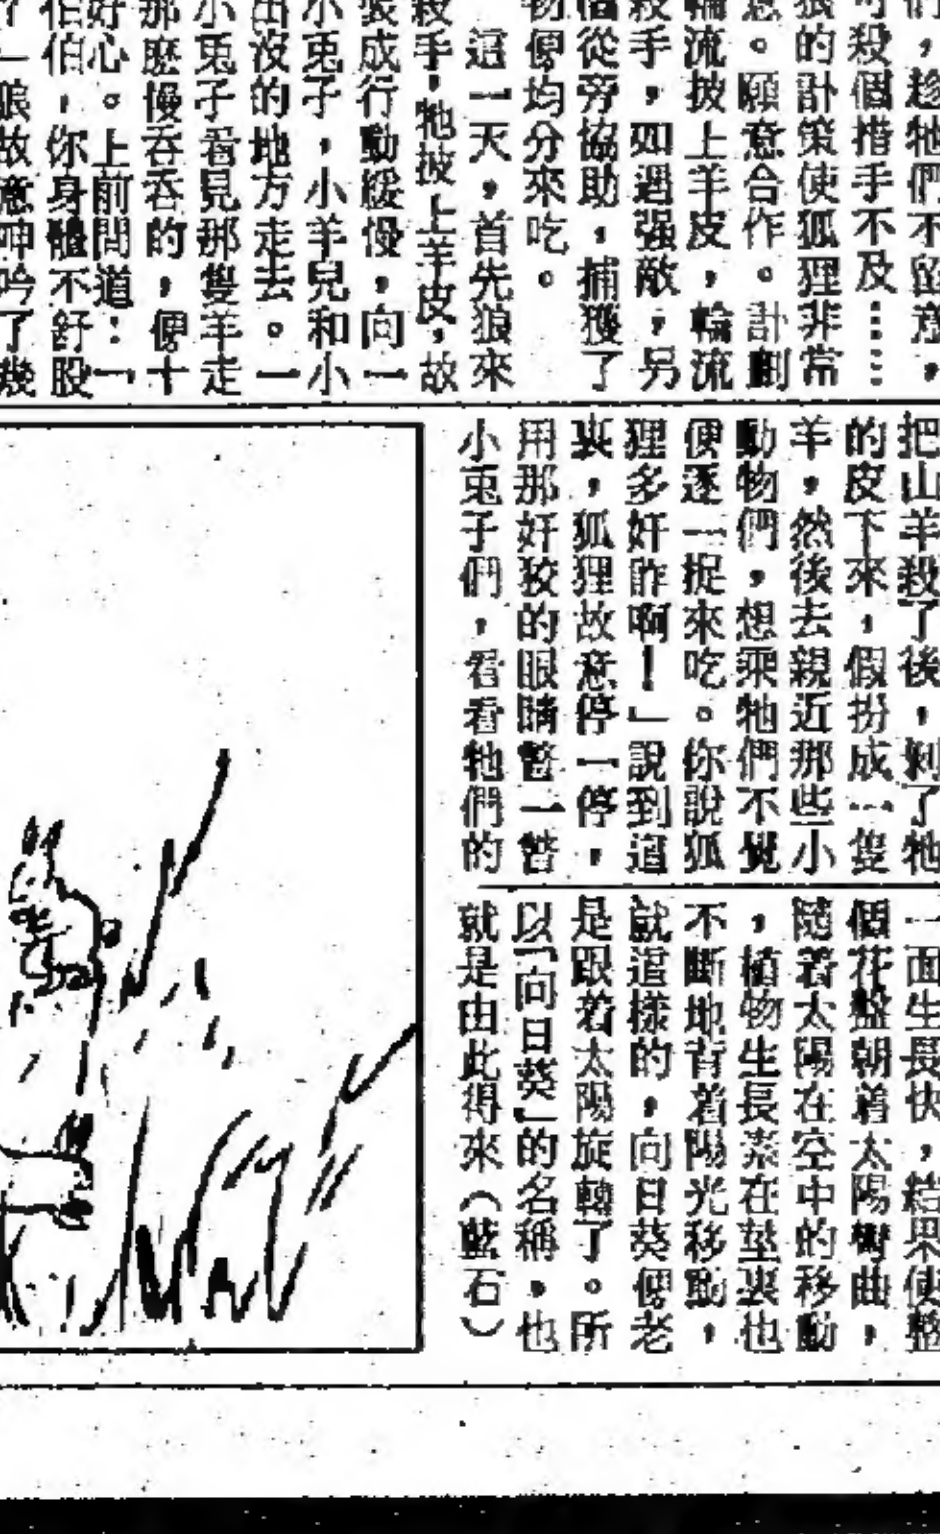 們，趁牠們不留意，
可殺個措手不及……
狼的計策使狐狸非常
意。願意合作。計劃
輪流披上羊皮，輪流
殺手，如遇强敵，另
個從旁協助，捕獲了
物便均分來吃。
這一天，首先狼來
殺手，牠披上羊皮，故
裝成行動緩慢，向一
小兎子，小羊兒和小
出沒的地方走去。一
小兎子看見那隻羊走
那麽慢吞吞的，便十
好心。上前問道：「
伯伯，你身體不舒股
？」狼故意呻吟了幾
把山羊殺了後，剝了牠
的皮下來，假扮成一隻
羊，然後去親近那些小
動物們，想乘牠們不覺
便逐一捉來吃。你說狐
狸多奸詐啊！」說到這
裏，狐狸故意停一停，
用那奸狡的眼睛瞥一瞥
小兎子們，看看牠們的
一面生長快，結果使整
個花盤朝着太陽彎曲，
隨着太陽在空中的移動
，植物生長素在莖裏也
不斷地背着陽光移動，
就這樣的，向日葵便老
是跟着太陽旋轉了。所
以「向日葵」的名稱，也
就是由此得來（藍石）